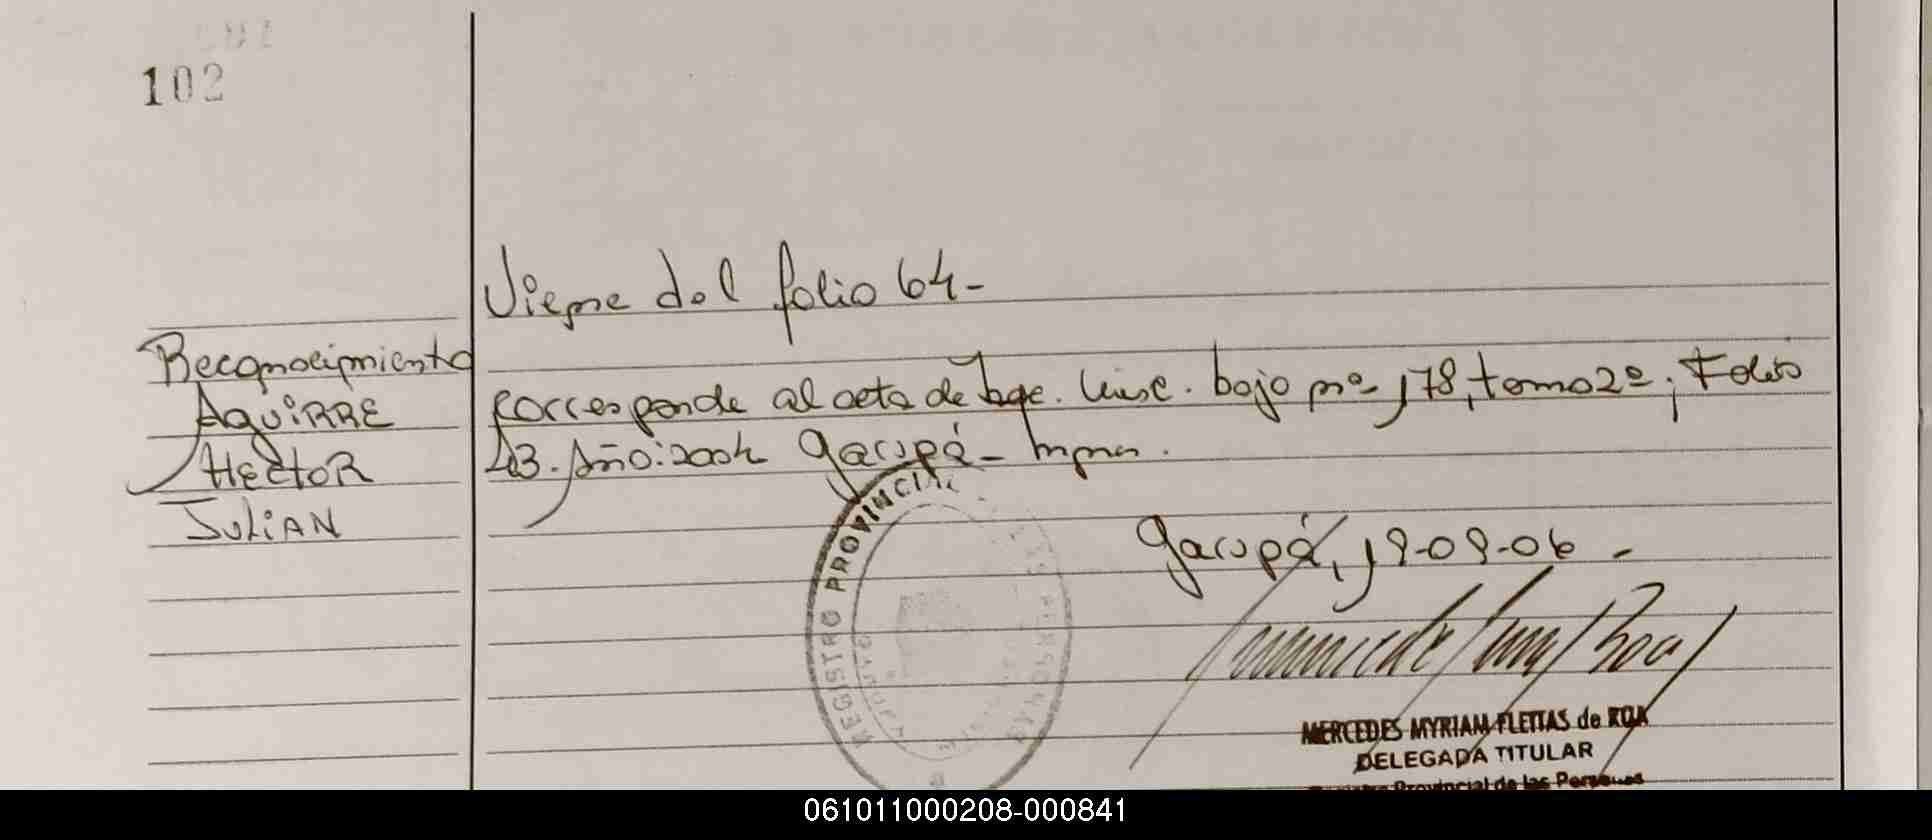 102
Viene del folio 64-
Reconocimiento
AGUIRRE
HECTOR
JULIAN
corresponde al acta de Insc. bajo nº 178, tomo 2º, Folio
43. Año: 2004 Garupá - Mnes.
Garupá, 19-09-06 -
REGISTRO PROVINCIAL
MERCEDES MYRIAM FLEITAS de ROA
DELEGADA TITULAR
Provincial de las Personas
061011000208-000841